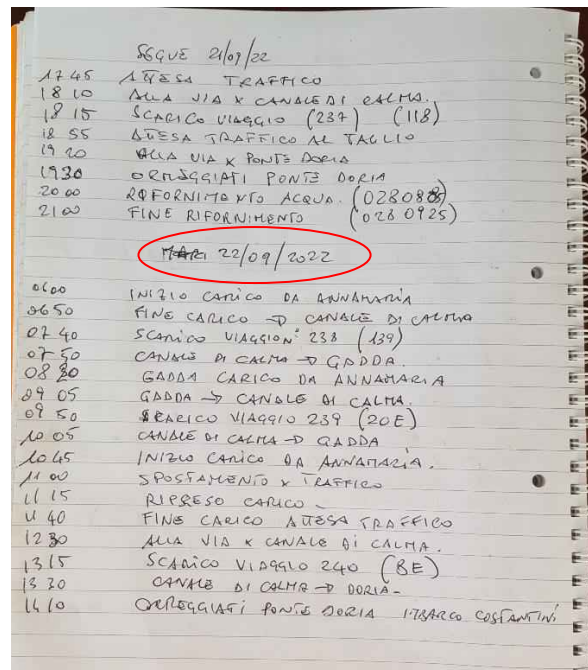 SEGUE 21/09/22
1745 ATTESA TRAFFICO
1810 ALLA VIA X CANALE DI CALMA.
1815 SCARICO VIAGGIO (237) (118)
1855 ATTESA TRAFFICO AL TAGLIO
1920 ALLA VIA X PONTE DORIA
1930 ORMEGGIATI PONTE DORIA
2000 RIFORNIMENTO ACQUA. (028080
2100 FINE RIFORNIMENTO (0280925)
22/09/2022
0600 INIZIO CARICO DA ANNAMARIA
0650 FINE CARICO → CANALE DI CALMA
0740 SCARICO VIAGGIO N° 238 (139)
0750 CANALE DI CALMA → GADDA.
08 GADDA CARICO DA ANNAMARIA
0905 GADDA → CANALE DI CALMA.
0950 SCARICO VIAGGIO 239 (20E)
1005 CANALE DI CALMA → GADDA
1045 INIZIO CARICO DA ANNAMARIA.
1100 SPOSTAMENTO X TRAFFICO
1115 RIPRESO CARICO -
1140 FINE CARICO ATTESA TRAFFICO
1230 ALLA VIA X CANALE DI CALMA.
1315 SCARICO VIAGGIO 240 (8E)
1330 CANALE DI CALMA → DORIA-
1410 ORMEGGIATI PONTE DORIA SBARCO COSTANTINI